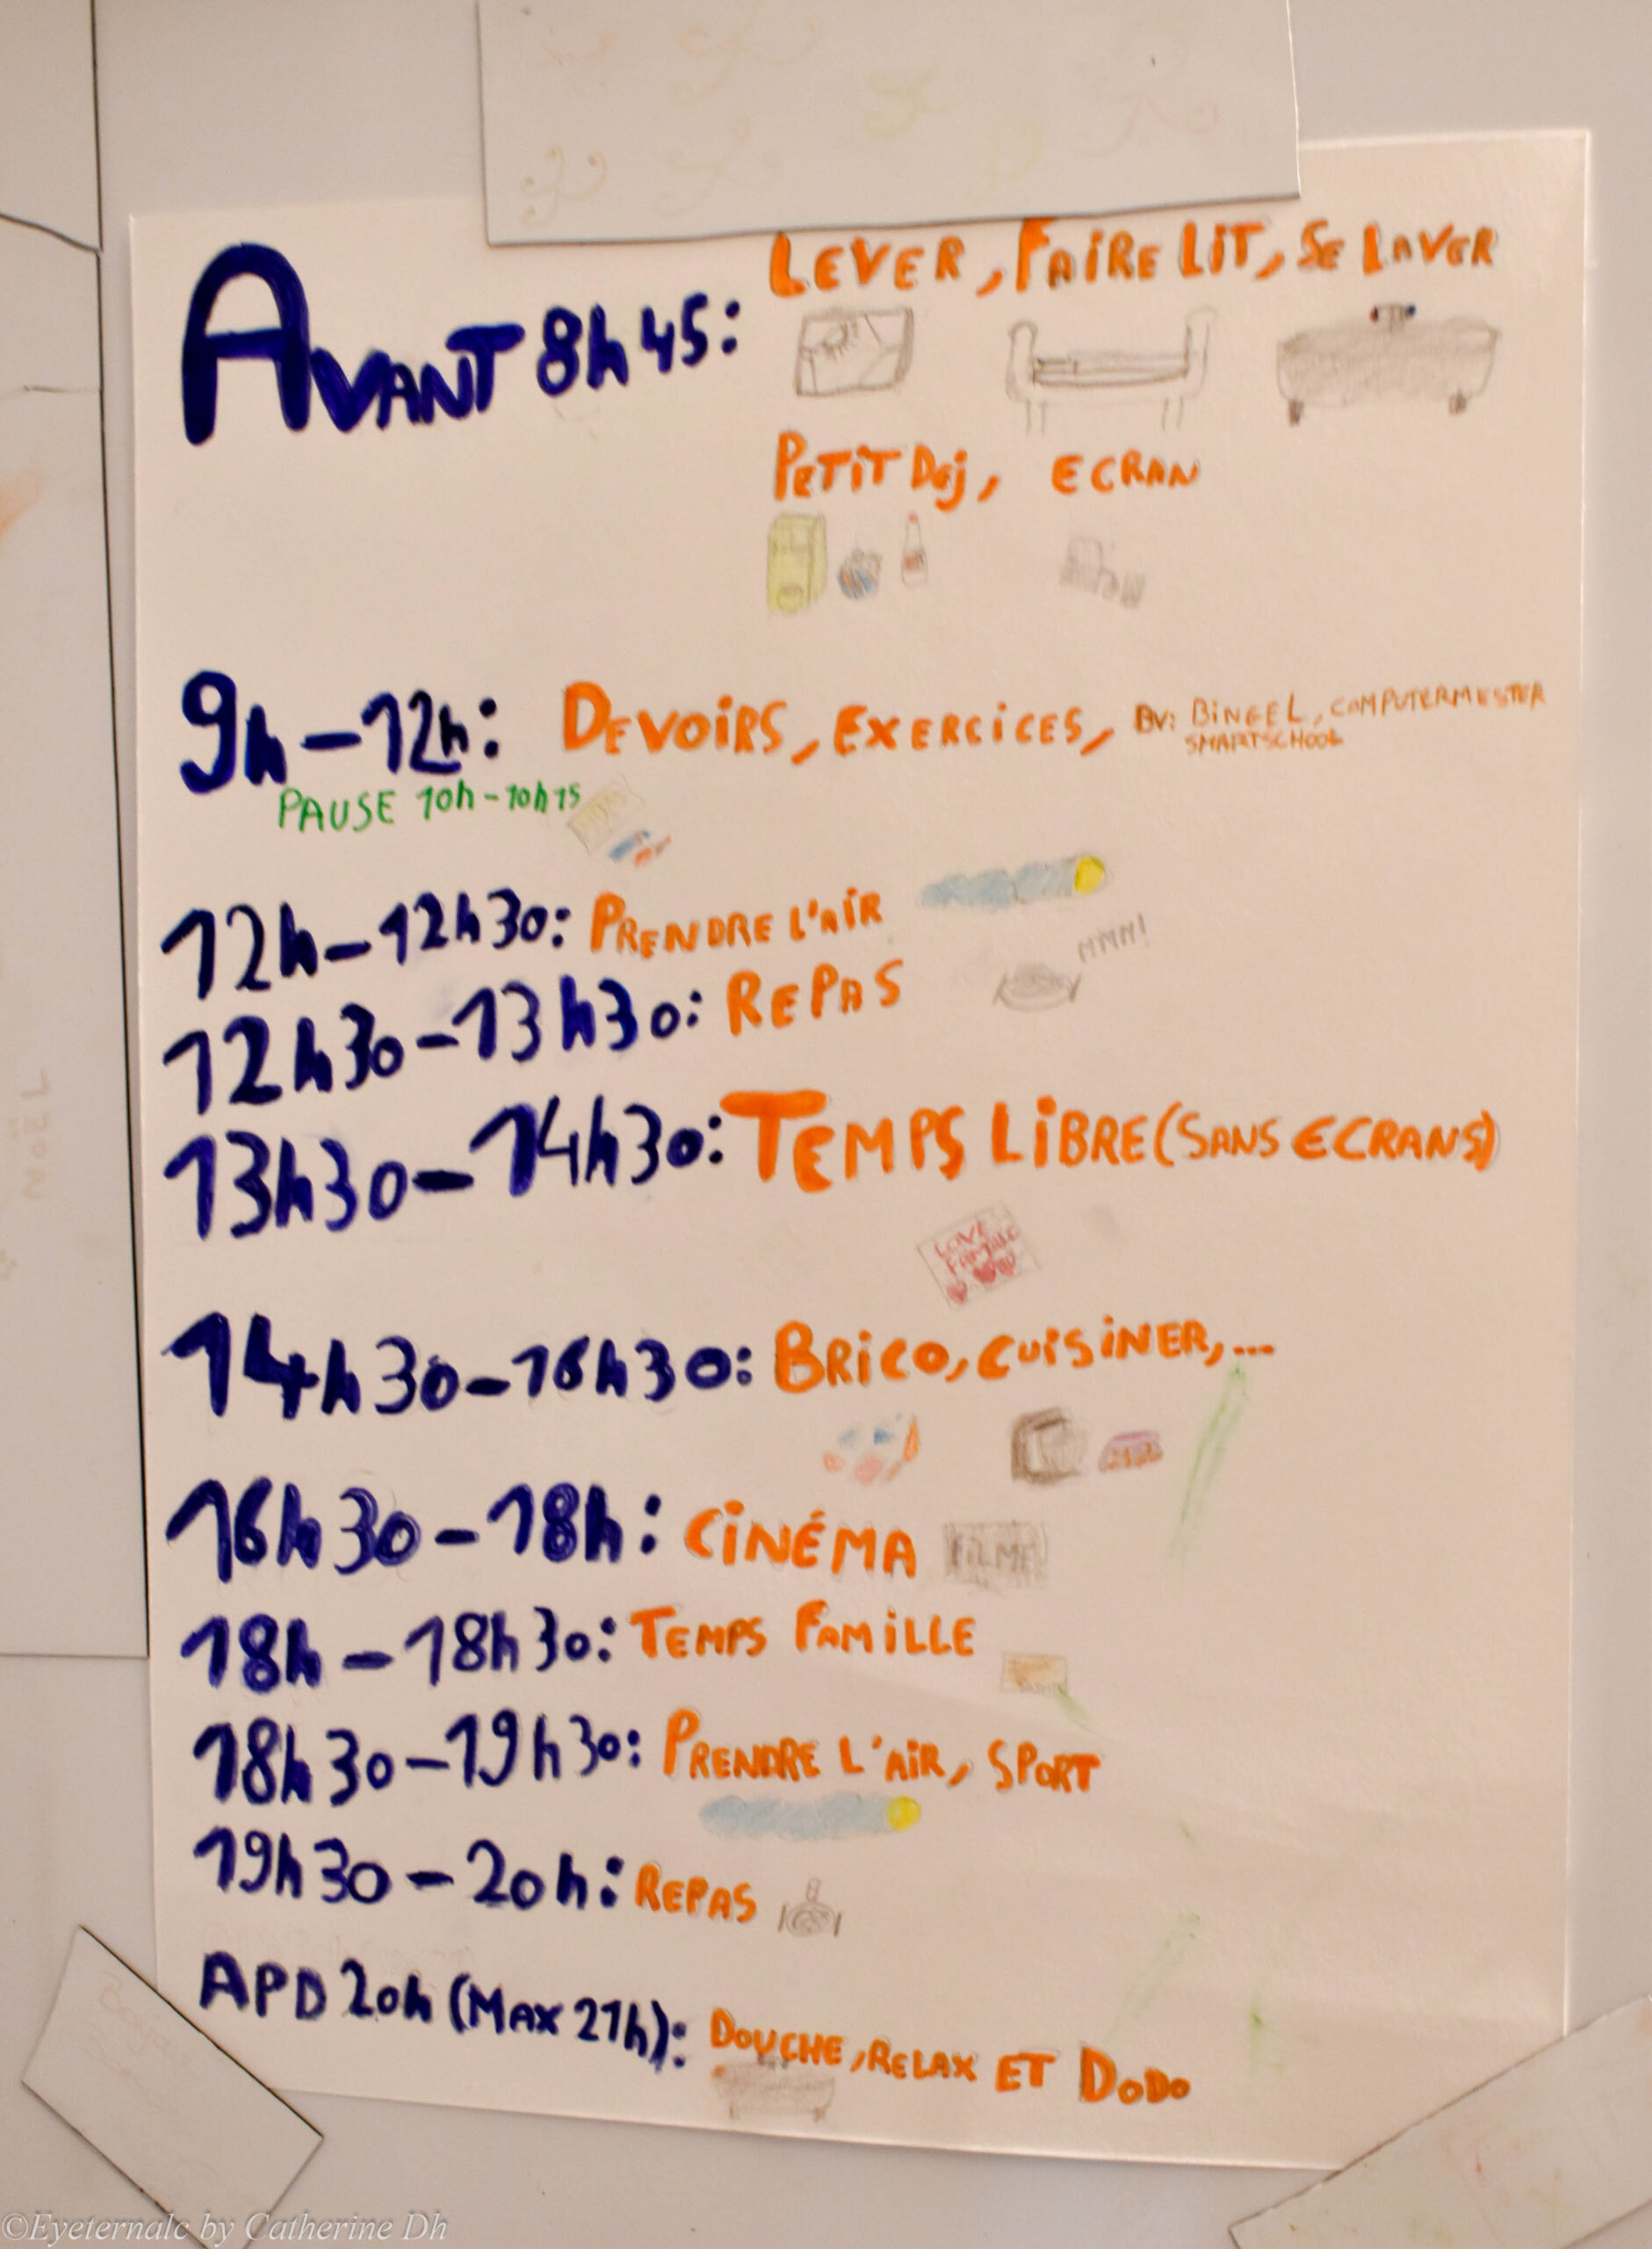 LEVER, FAIRE LIT, SE LAVER
AVANT 8h45:
PETIT DEJ, ECRAN
9h-12h: DEVOIRS, EXERCICES, BV: BINGEL, COMPUTERMESTER
SMARTSCHOOL
PAUSE 10h-10h15
12h-12h30: PRENDRE L'AIR
MMM!
12h30-13h30: REPAS
13h30-14h30: TEMPS LIBRE (SANS ECRANS)
LOVE
FAMILLE
14h30-16h30: BRICO, CUISINER,...
16h30-18h: CINÉMA FILME
18h-18h30: TEMPS FAMILLE
18h30-19h30: PRENDRE L'AIR, SPORT
19h30-20h: REPAS
APD 20h (MAX 21h): DOUCHE, RELAX ET DODO
NOËL
©Eyeternalc by Catherine Dh